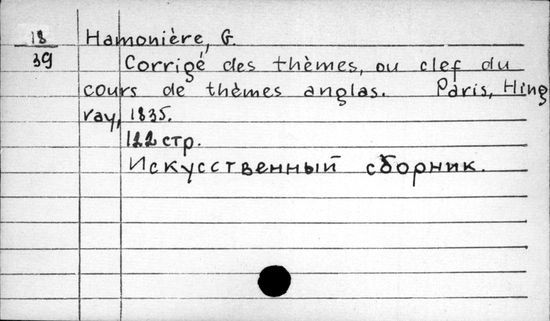 18 Hamonière, G.
39 Corrigé des thèmes, ou clef du
cours de thèmes anglas. Paris, Hing
ray, 1835.
122 стр.
Искусственный сборник.